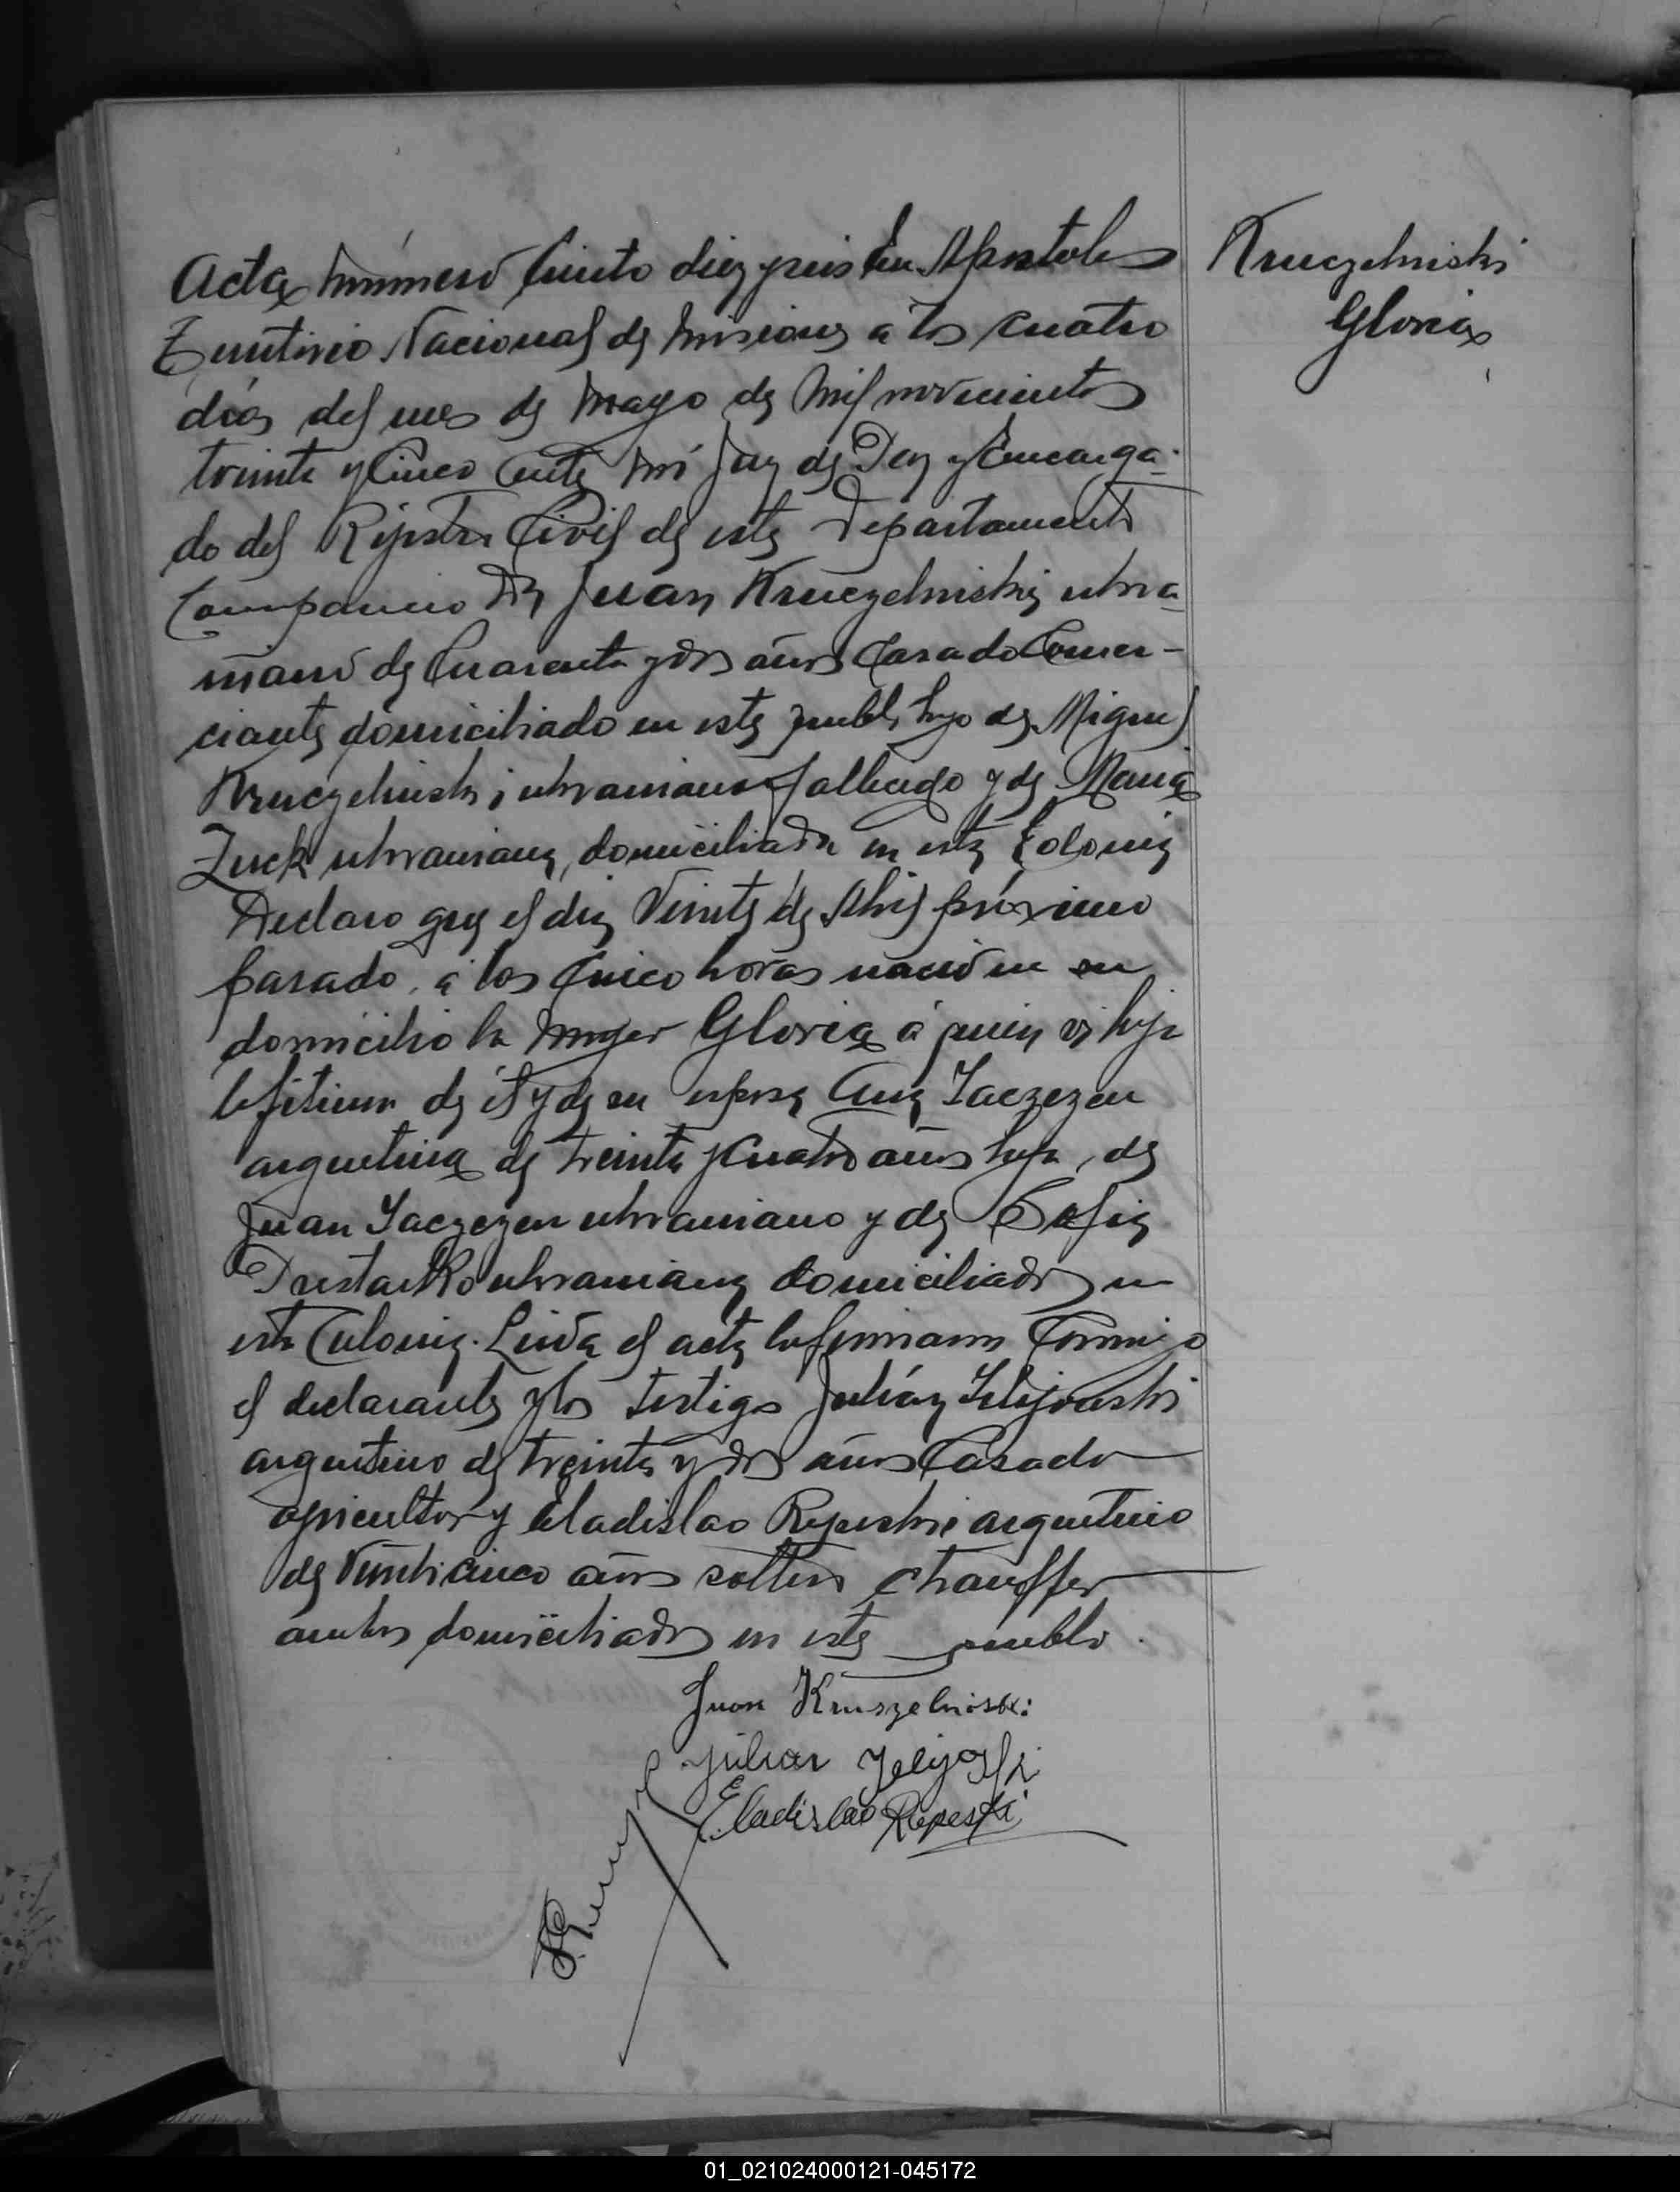 Acta número Ciento diez y seis En Apostoles
Territorio Nacional de Misiones a los cuatro
días del mes de Mayo de Mil novecientos
treinta y Cinco Ante mí Juez de Paz y Encarga-
do del Rejistro Civil de este Departamento
Comparecio Dn Juan Kruczelniski, ukra-
niano de Cuarenta y dos años Casado Comer-
ciante domiciliado en este pueblo hijo de Miguel
Kruczelniski ukraniano fallecido y de Maria
Zuck ukraniana, domiciliada en esta Colonia
Declaro que el dia Veinte de Abril próximo
pasado, a las Cinco horas nació en su
domicilio la mujer Gloria á quien es hija
lejitima de él y de su esposa Ana Yaczezen
argentina de treinta y Cuatro años hija, de
Juan Yaczezen ukraniano y de Sofia
ukraniana domiciliados en
esta Colonia. Leida el acta la firmaron Conmigo
el declarante y los testigos Julián
argentino de treinta y dos años Casado
agricultor y Eladislao Repeski argentino
de Veinticinco años soltero chauffer
ambos domiciliados en este pueblo.
Juan Kruszelniski
Julian
Eladislao Repeski
Kruczelniski
Gloria
01_021024000121-045172